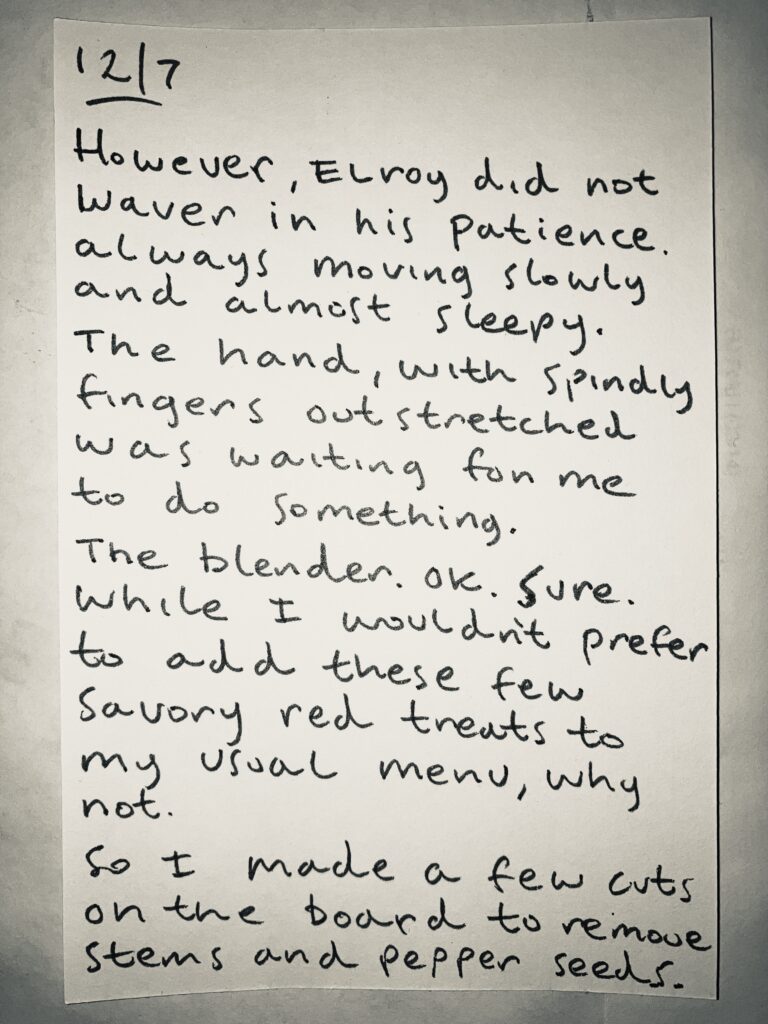 12/7
However, Elroy did not
waver in his patience.
always moving slowly
and almost sleepy.
The hand, with spindly
fingers outstretched
was waiting for me
to do something.
The blender. OK. Sure.
While I wouldn't prefer
to add these few
savory red treats to
my usual menu, why
not.
So I made a few cuts
on the board to remove
stems and pepper seeds.